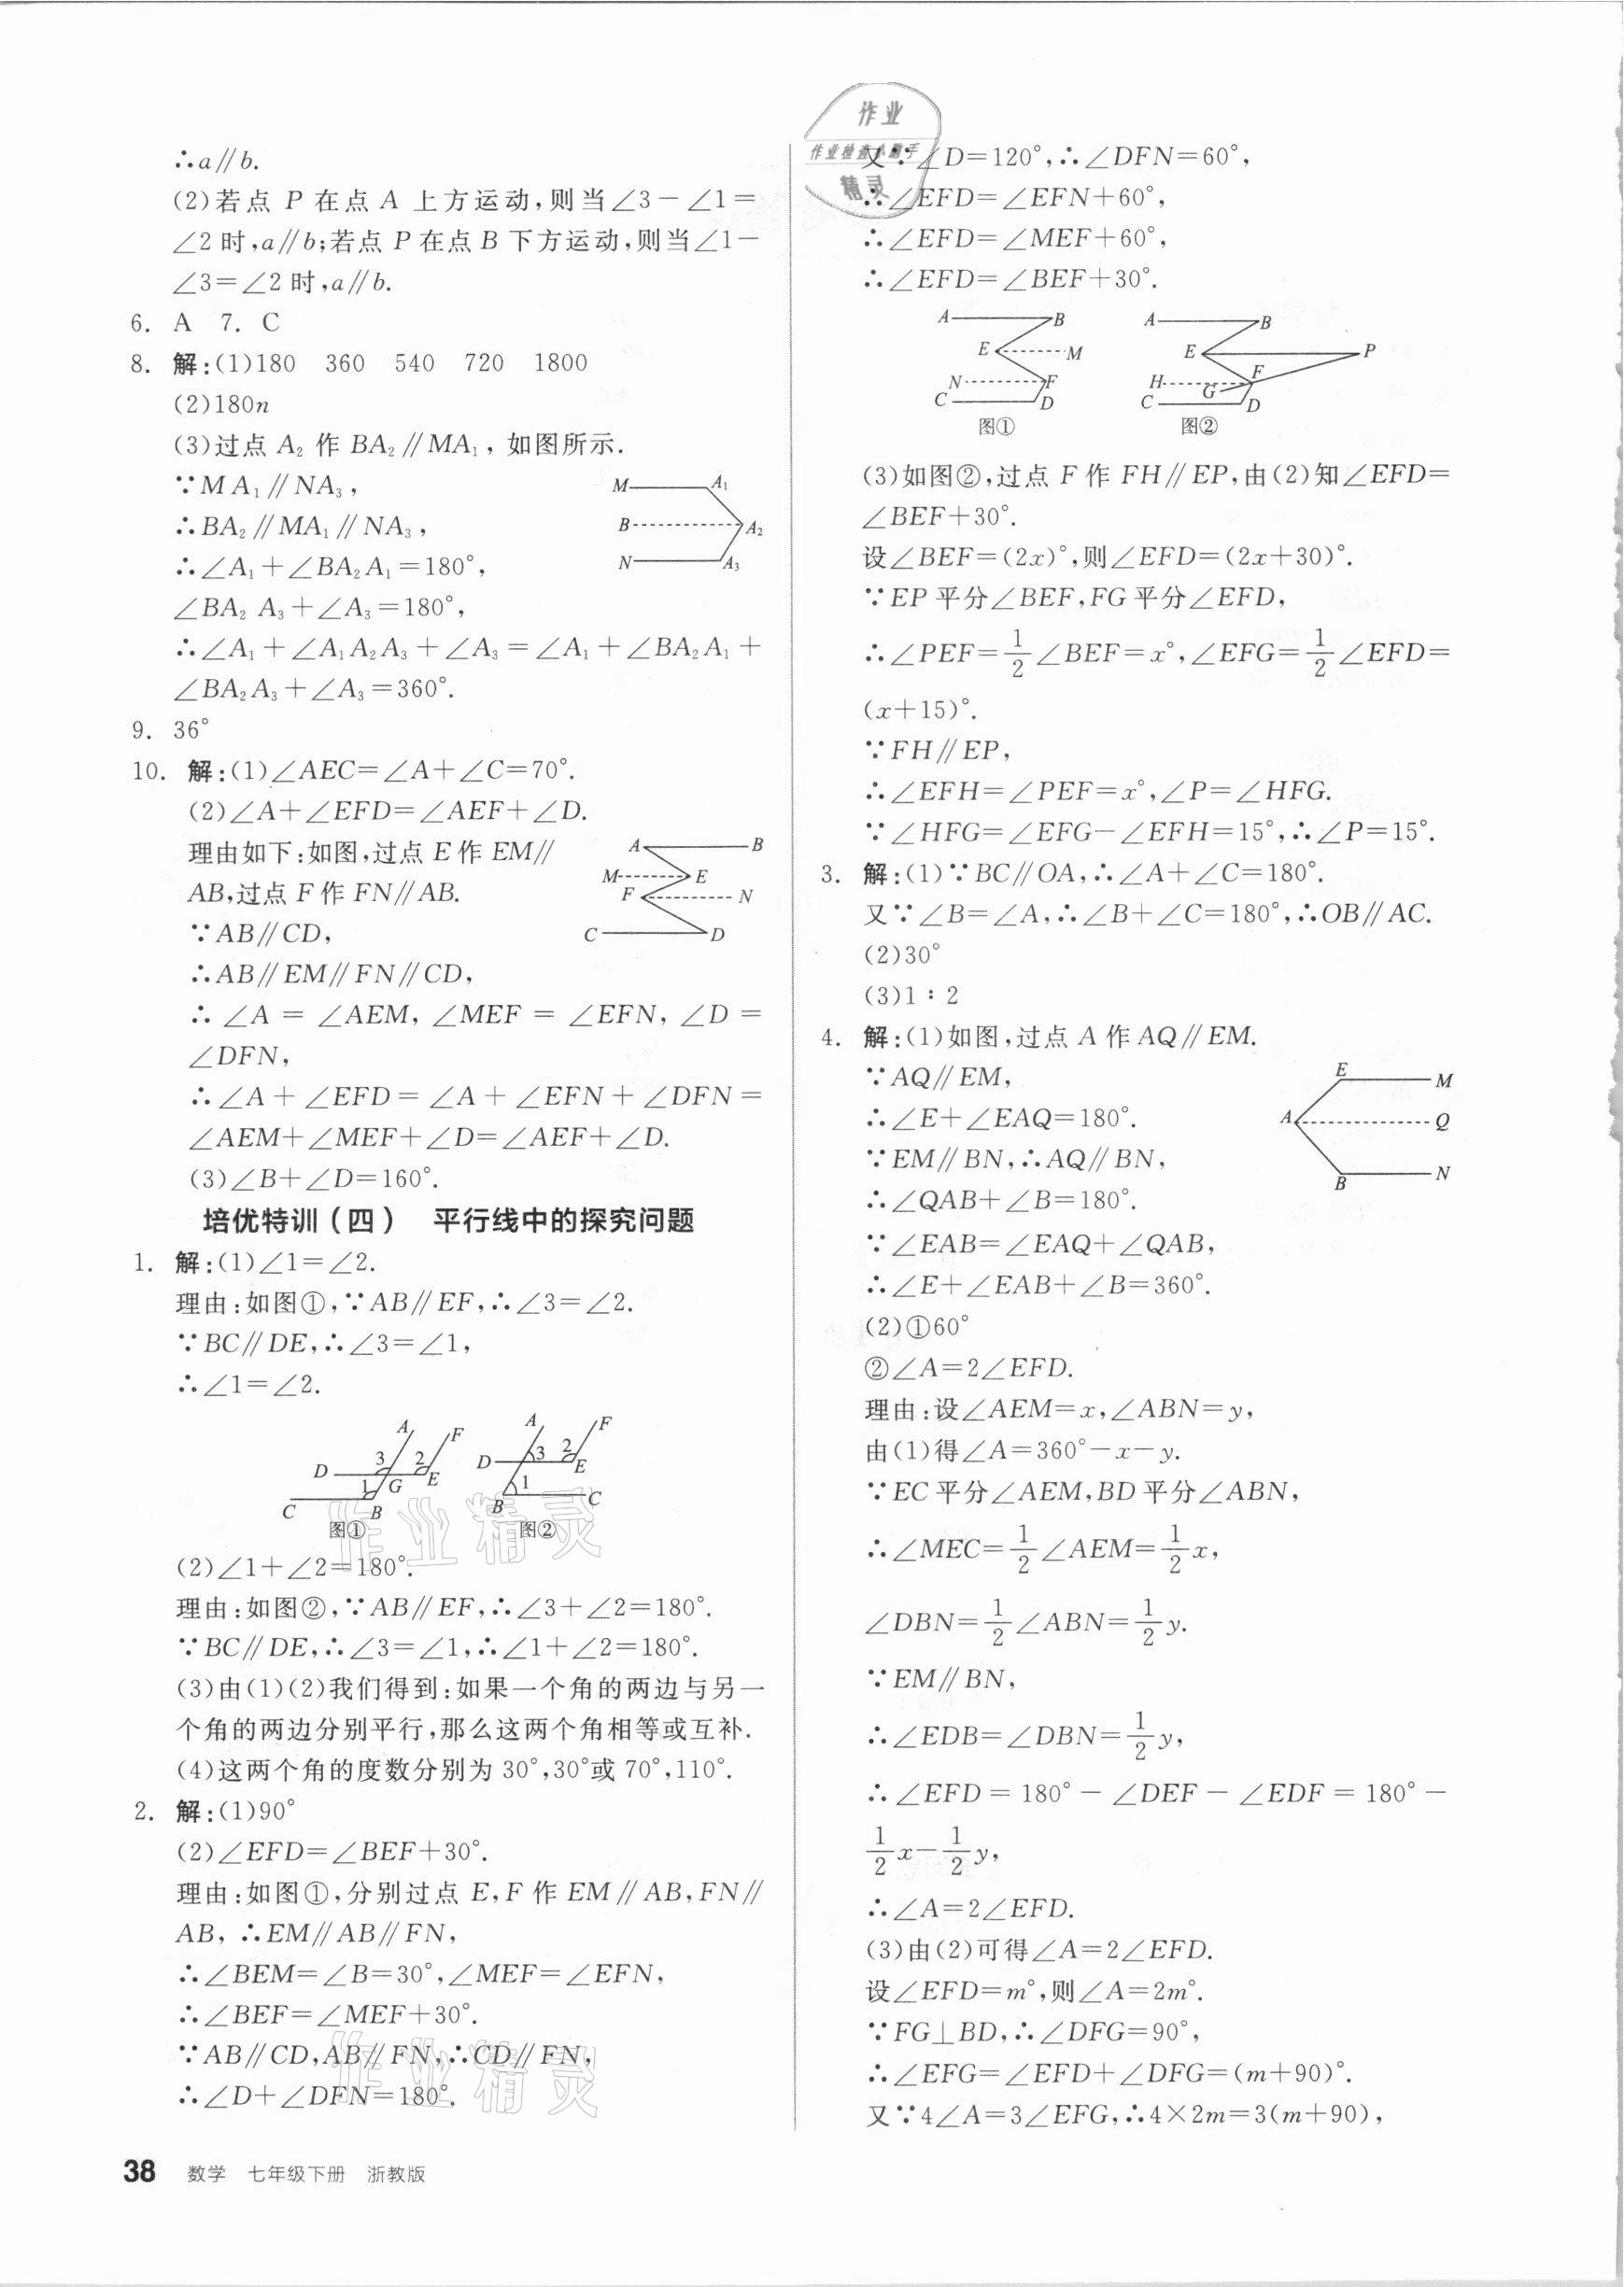 ∴a∥b.
(2)若点 P 在点 A 上方运动,则当∠3-∠1=
∠2时,a∥b;若点 P 在点 B 下方运动,则当∠1-
∠3=∠2时,a∥b.
6. A 7. C
8. 解:(1)180 360 540 720 1800
(2)180n
(3)过点 A₂ 作 BA₂∥MA₁, 如图所示.
∵MA₁∥NA₃,
∴BA₂∥MA₁∥NA₃,
∴∠A₁+∠BA₂A₁=180°,
∠BA₂A₃+∠A₃=180°,
M A₁
B A₂
N A₃
∴∠A₁+∠A₁A₂A₃+∠A₃=∠A₁+∠BA₂A₁+
∠BA₂A₃+∠A₃=360°.
9. 36°
10. 解:(1)∠AEC=∠A+∠C=70°.
(2)∠A+∠EFD=∠AEF+∠D.
理由如下:如图,过点 E 作 EM∥
AB,过点 F 作 FN∥AB.
∵AB∥CD,
A B
M E
F N
C D
∴AB∥EM∥FN∥CD,
∴∠A=∠AEM,∠MEF=∠EFN,∠D=
∠DFN,
∴∠A+∠EFD=∠A+∠EFN+∠DFN=
∠AEM+∠MEF+∠D=∠AEF+∠D.
(3)∠B+∠D=160°.
培优特训(四) 平行线中的探究问题
1. 解:(1)∠1=∠2.
理由:如图①,∵AB∥EF,∴∠3=∠2.
∵BC∥DE,∴∠3=∠1,
∴∠1=∠2.
A F
3 2
D E
1 G
C B
图①
A F
3 2
D E
1
B C
图②
(2)∠1+∠2=180°.
理由:如图②,∵AB∥EF,∴∠3+∠2=180°.
∵BC∥DE,∴∠3=∠1,∴∠1+∠2=180°.
(3)由(1)(2)我们得到:如果一个角的两边与另一
个角的两边分别平行,那么这两个角相等或互补.
(4)这两个角的度数分别为 30°,30°或 70°,110°.
2. 解:(1)90°
(2)∠EFD=∠BEF+30°.
理由:如图①,分别过点 E,F 作 EM∥AB,FN∥
AB, ∴EM∥AB∥FN,
∴∠BEM=∠B=30°,∠MEF=∠EFN,
∴∠BEF=∠MEF+30°.
∵AB∥CD,AB∥FN,∴CD∥FN,
∴∠D+∠DFN=180°.
作业精灵
作业精灵
38 数学 七年级下册 浙教版
作业
作业检查小助手
精灵
又∵∠D=120°,∴∠DFN=60°,
∴∠EFD=∠EFN+60°,
∴∠EFD=∠MEF+60°,
∴∠EFD=∠BEF+30°.
A B
E M
N F
C D
图①
A B
E P
H F
G
C D
图②
(3)如图②,过点 F 作 FH∥EP,由(2)知∠EFD=
∠BEF+30°.
设∠BEF=(2x)°,则∠EFD=(2x+30)°.
∵EP平分∠BEF,FG平分∠EFD,
∴∠PEF=1/2∠BEF=x°,∠EFG=1/2∠EFD=
(x+15)°.
∵FH∥EP,
∴∠EFH=∠PEF=x°,∠P=∠HFG.
∵∠HFG=∠EFG-∠EFH=15°,∴∠P=15°.
3. 解:(1)∵BC∥OA,∴∠A+∠C=180°.
又∵∠B=∠A,∴∠B+∠C=180°,∴OB∥AC.
(2)30°
(3)1∶2
4. 解:(1)如图,过点 A 作 AQ∥EM.
∵AQ∥EM,
∴∠E+∠EAQ=180°.
∵EM∥BN,∴AQ∥BN,
∴∠QAB+∠B=180°.
E M
A Q
B N
∵∠EAB=∠EAQ+∠QAB,
∴∠E+∠EAB+∠B=360°.
(2)①60°
②∠A=2∠EFD.
理由:设∠AEM=x,∠ABN=y,
由(1)得∠A=360°-x-y.
∵EC平分∠AEM,BD平分∠ABN,
∴∠MEC=1/2∠AEM=1/2x,
∠DBN=1/2∠ABN=1/2y.
∵EM∥BN,
∴∠EDB=∠DBN=1/2y,
∴∠EFD=180°-∠DEF-∠EDF=180°-
1/2x-1/2y,
∴∠A=2∠EFD.
(3)由(2)可得∠A=2∠EFD.
设∠EFD=m°,则∠A=2m°.
∵FG⊥BD,∴∠DFG=90°,
∴∠EFG=∠EFD+∠DFG=(m+90)°.
又∵4∠A=3∠EFG,∴4×2m=3(m+90),